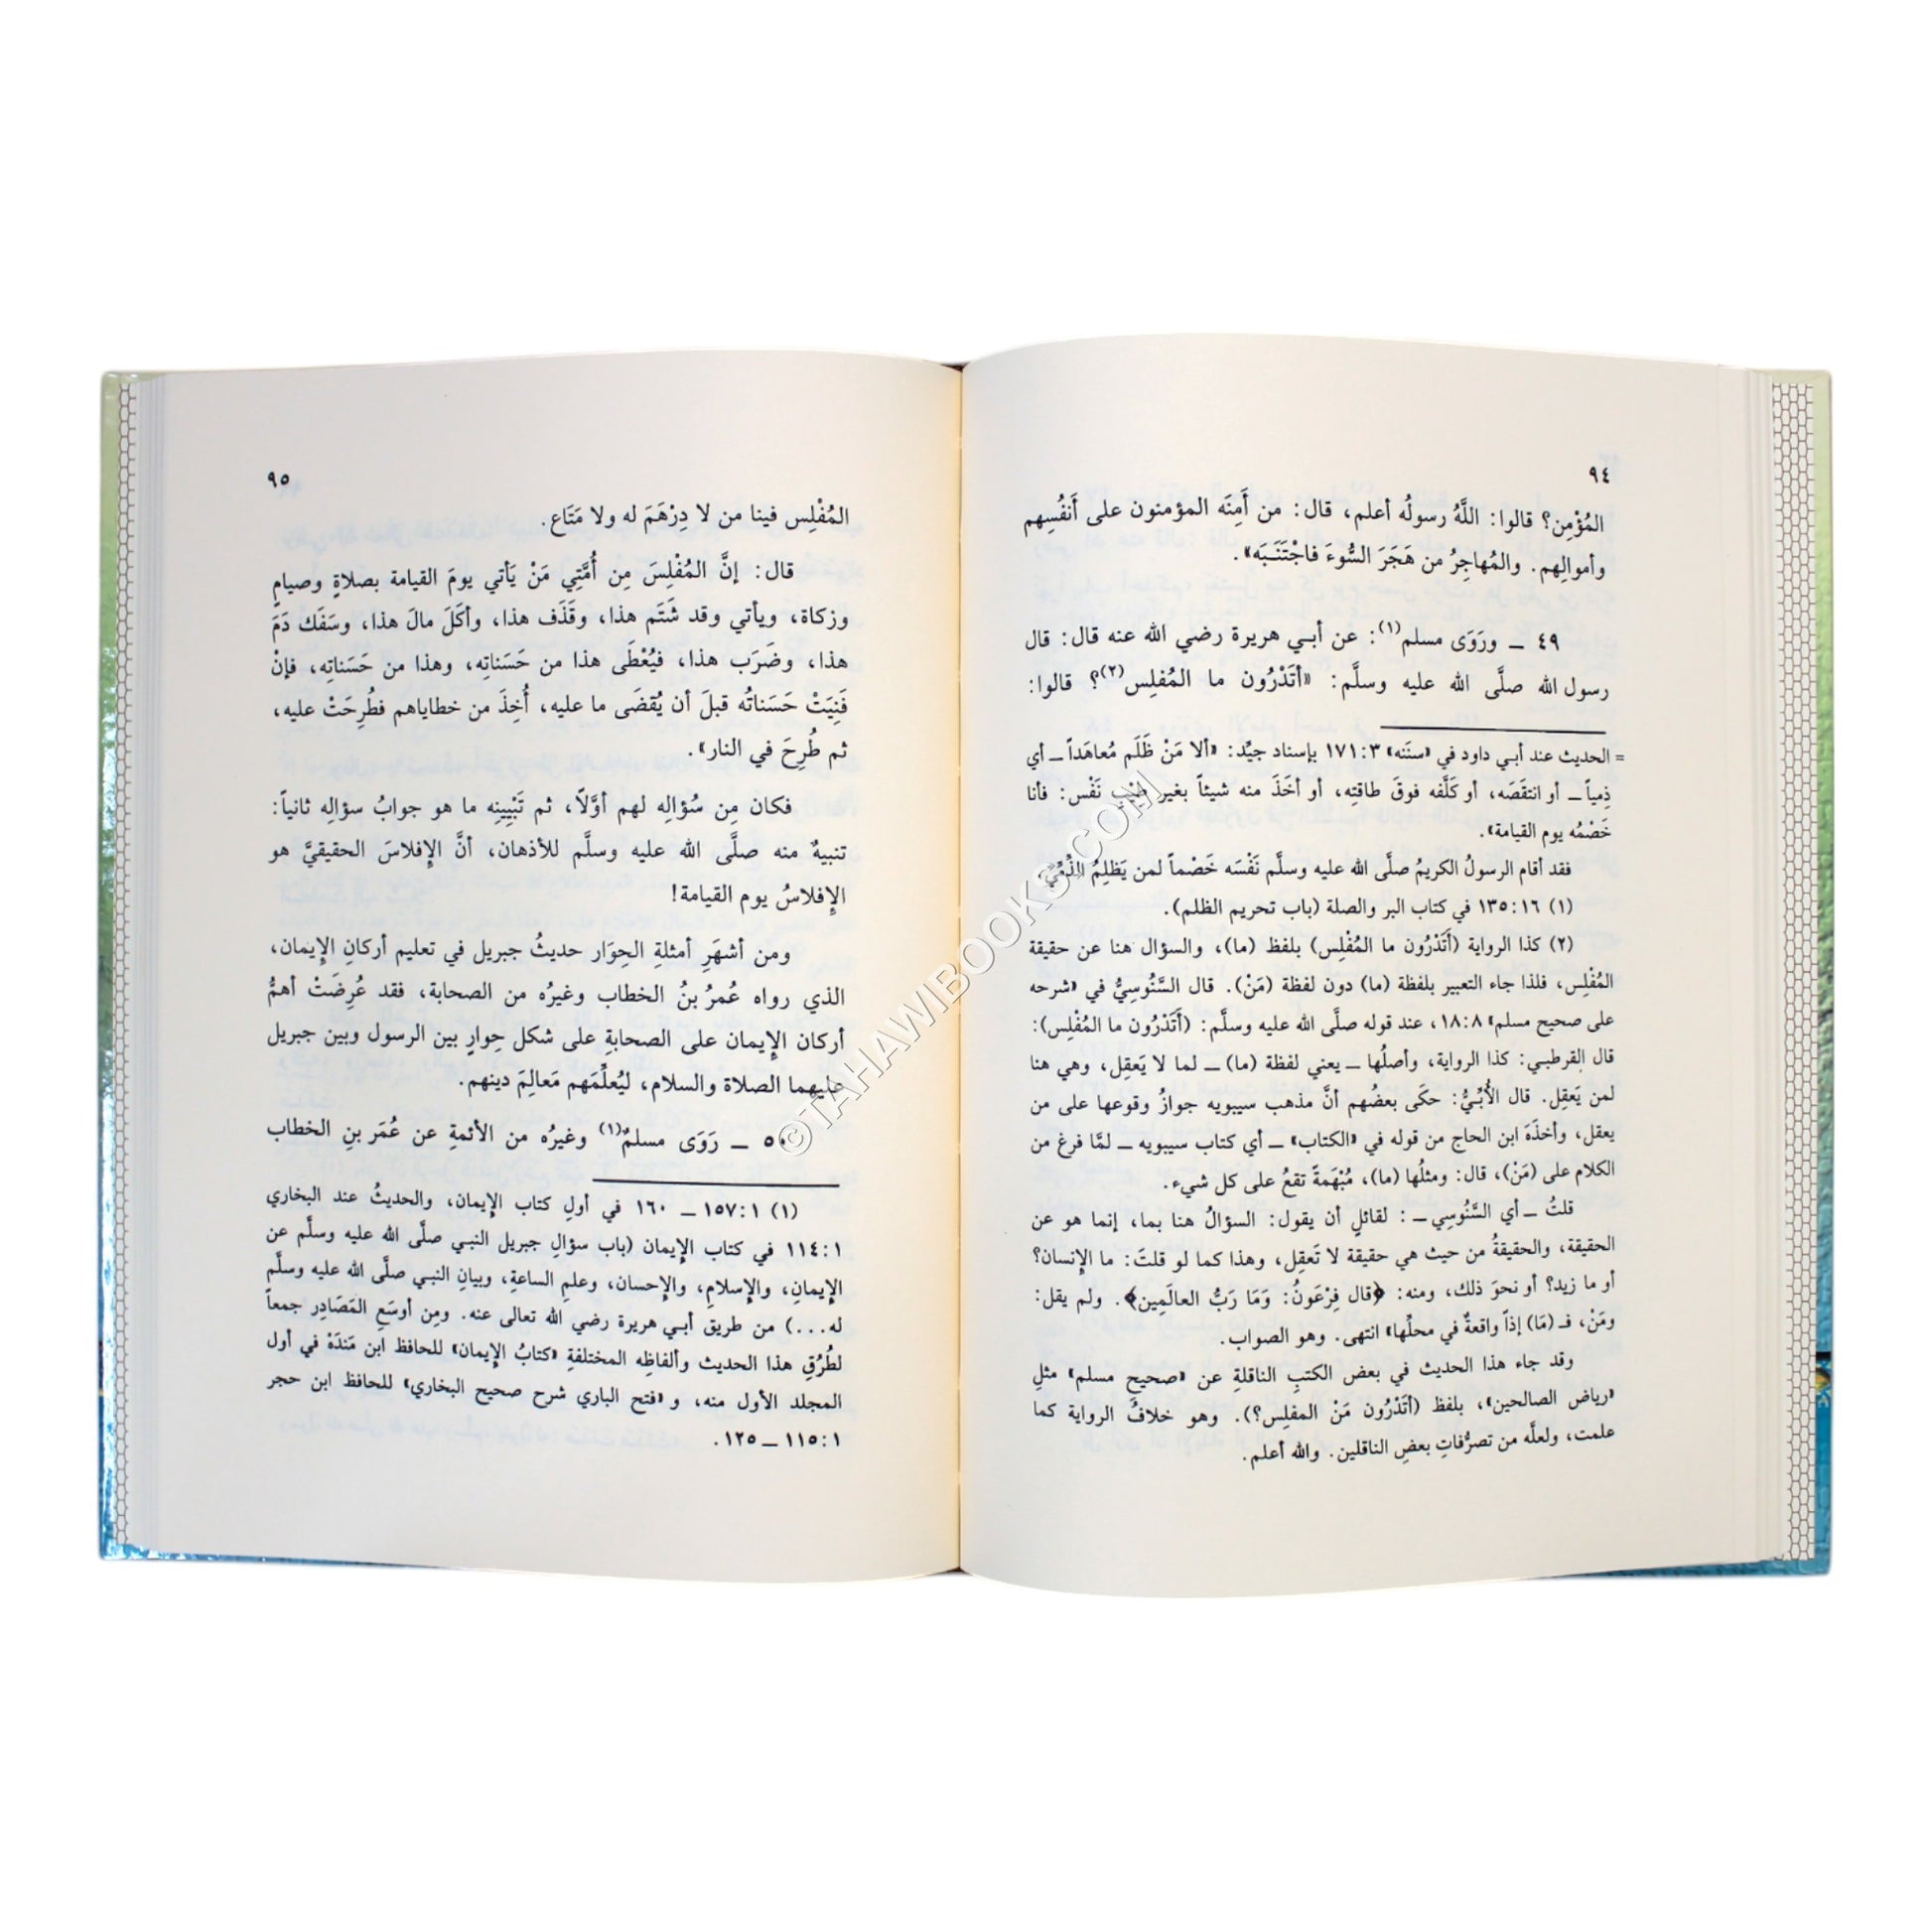 ٩٤
المُؤْمِن؟ قالوا: اللَّهُ رسولُه أعلم، قال: من أَمِنَه المؤمنون على أَنفُسِهم
وأموالِهم. والمُهاجِرُ من هَجَرَ السُّوءَ فاجْتَنَبَه».
٤٩ ـ ورَوَى مسلم(١): عن أبي هريرة رضي الله عنه قال: قال
رسول الله صلَّى الله عليه وسلَّم: «أتَدْرُون ما المُفْلِس(٢)؟ قالوا:
= الحديث عند أبي داود في «سننه» ٣:‏١٧١ بإسناد جيِّد: «ألا مَنْ ظَلَم مُعاهَداً ـ أي
ذِمياً ـ أو انتقَصَه، أو كَلَّفه فوقَ طاقتِه، أو أخَذَ منه شيئاً بغير طيبِ نَفْس: فأنا
خَصْمُه يوم القيامة».
فقد أقام الرسولُ الكريمُ صلَّى الله عليه وسلَّم نَفْسَه خَصْماً لمن يَظلِمُ الذِّمِّيَّ.
(١) ١٦:‏١٣٥ في كتاب البر والصلة (باب تحريم الظلم).
(٢) كذا الرواية (أَتَدْرُون ما المُفْلِس) بلفظ (ما)، والسؤال هنا عن حقيقة
المُفْلِس، فلذا جاء التعبير بلفظة (ما) دون لفظة (مَنْ). قال السَّنُوسِيُّ في «شرحه
على صحيح مسلم» ٨:‏١٨، عند قوله صلَّى الله عليه وسلَّم: (أَتَدْرُون ما المُفْلِس):
قال القرطبي: كذا الرواية، وأصلُها ـ يعني لفظة (ما) ـ لما لا يَعقِل، وهي هنا
لمن يَعقِل. قال الأُبِّيُّ: حكَى بعضُهم أنَّ مذهب سيبويه جوازُ وقوعها على من
يعقل، وأخذَه ابن الحاج من قوله في «الكتاب» ـ أي كتاب سيبويه ـ لمَّا فرغ من
الكلام على (مَنْ)، قال: ومثلُها (ما)، مُبْهَمةً تقعُ على كل شيء.
قلتُ ـ أي السَّنُوسِي ـ : لقائلٍ أن يقول: السؤالُ هنا بما، إنما هو عن
الحقيقة، والحقيقةُ من حيث هي حقيقة لا تَعقِل، وهذا كما لو قلتَ: ما الإنسان؟
أو ما زيد؟ أو نحوَ ذلك، ومنه: ﴿قال فِرْعَونُ: وَمَا رَبُّ العالَمِين﴾. ولم يقل:
ومَنْ، فـ (مَا) إذاً واقعةٌ في محلِّها» انتهى. وهو الصواب.
وقد جاء هذا الحديث في بعض الكتبِ الناقلةِ عن «صحيح مسلم» مثلِ
«رياض الصالحين»، بلفظ (أتَدْرُون مَنْ المفلِس؟). وهو خلافُ الرواية كما
علمت، ولعلَّه من تصرُّفاتِ بعضِ الناقلين. والله أعلم.
٩٥
المُفْلِس فينا من لا دِرْهَمَ له ولا مَتَاع.
قال: إنَّ المُفْلِسَ مِن أُمَّتِي مَنْ يَأتي يومَ القيامة بصلاةٍ وصيامٍ
وزكاة، ويأتي وقد شَتَم هذا، وقَذَف هذا، وأكَلَ مالَ هذا، وسَفَك دَمَ
هذا، وضَرَب هذا، فيُعْطَى هذا من حَسَناتِه، وهذا من حَسَناتِه، فإنْ
فَنِيَتْ حَسَناتُه قبلَ أن يُقضَى ما عليه، أُخِذَ من خطاياهم فطُرِحَتْ عليه،
ثم طُرِحَ في النار».
فكان مِن سُؤالِه لهم أوَّلاً، ثم تَبْيِينِه ما هو جوابُ سؤالِه ثانياً:
تنبيهٌ منه صلَّى الله عليه وسلَّم للأذهان، أنَّ الإفلاسَ الحقيقيَّ هو
الإفلاسُ يوم القيامة!
ومن أشهَرِ أمثلةِ الحِوَار حديثُ جبريل في تعليم أركانِ الإيمان،
الذي رواه عُمرُ بنُ الخطاب وغيرُه من الصحابة، فقد عُرِضَتْ أهمُّ
أركان الإيمان على الصحابةِ على شكل حِوارٍ بين الرسول وبين جبريل
عليهما الصلاة والسلام، ليُعلِّمَهم مَعالِمَ دينهم.
٥٠ ـ رَوَى مسلمٌ(١) وغيرُه من الأئمةِ عن عُمَر بنِ الخطاب
(١) ١:‏١٥٧ ـ ١٦٠ في أولِ كتاب الإيمان، والحديثُ عند البخاري
١:‏١١٤ في كتاب الإيمان (باب سؤالِ جبريل النبي صلَّى الله عليه وسلَّم عن
الإيمانِ، والإسلامِ، والإحسان، وعلمِ الساعةِ، وبيانِ النبي صلَّى الله عليه وسلَّم
له...) من طريق أبي هريرة رضي الله تعالى عنه. ومِن أوسَعِ المَصَادِر جمعاً
لطُرُقِ هذا الحديث وألفاظِه المختلفةِ «كتابُ الإيمان» للحافظ ابن مَندَهْ في أول
المجلد الأول منه، و «فتح الباري شرح صحيح البخاري» للحافظ ابن حجر
١:‏١١٥ ـ ١٢٥.
©TAHAWIBOOKS.COM